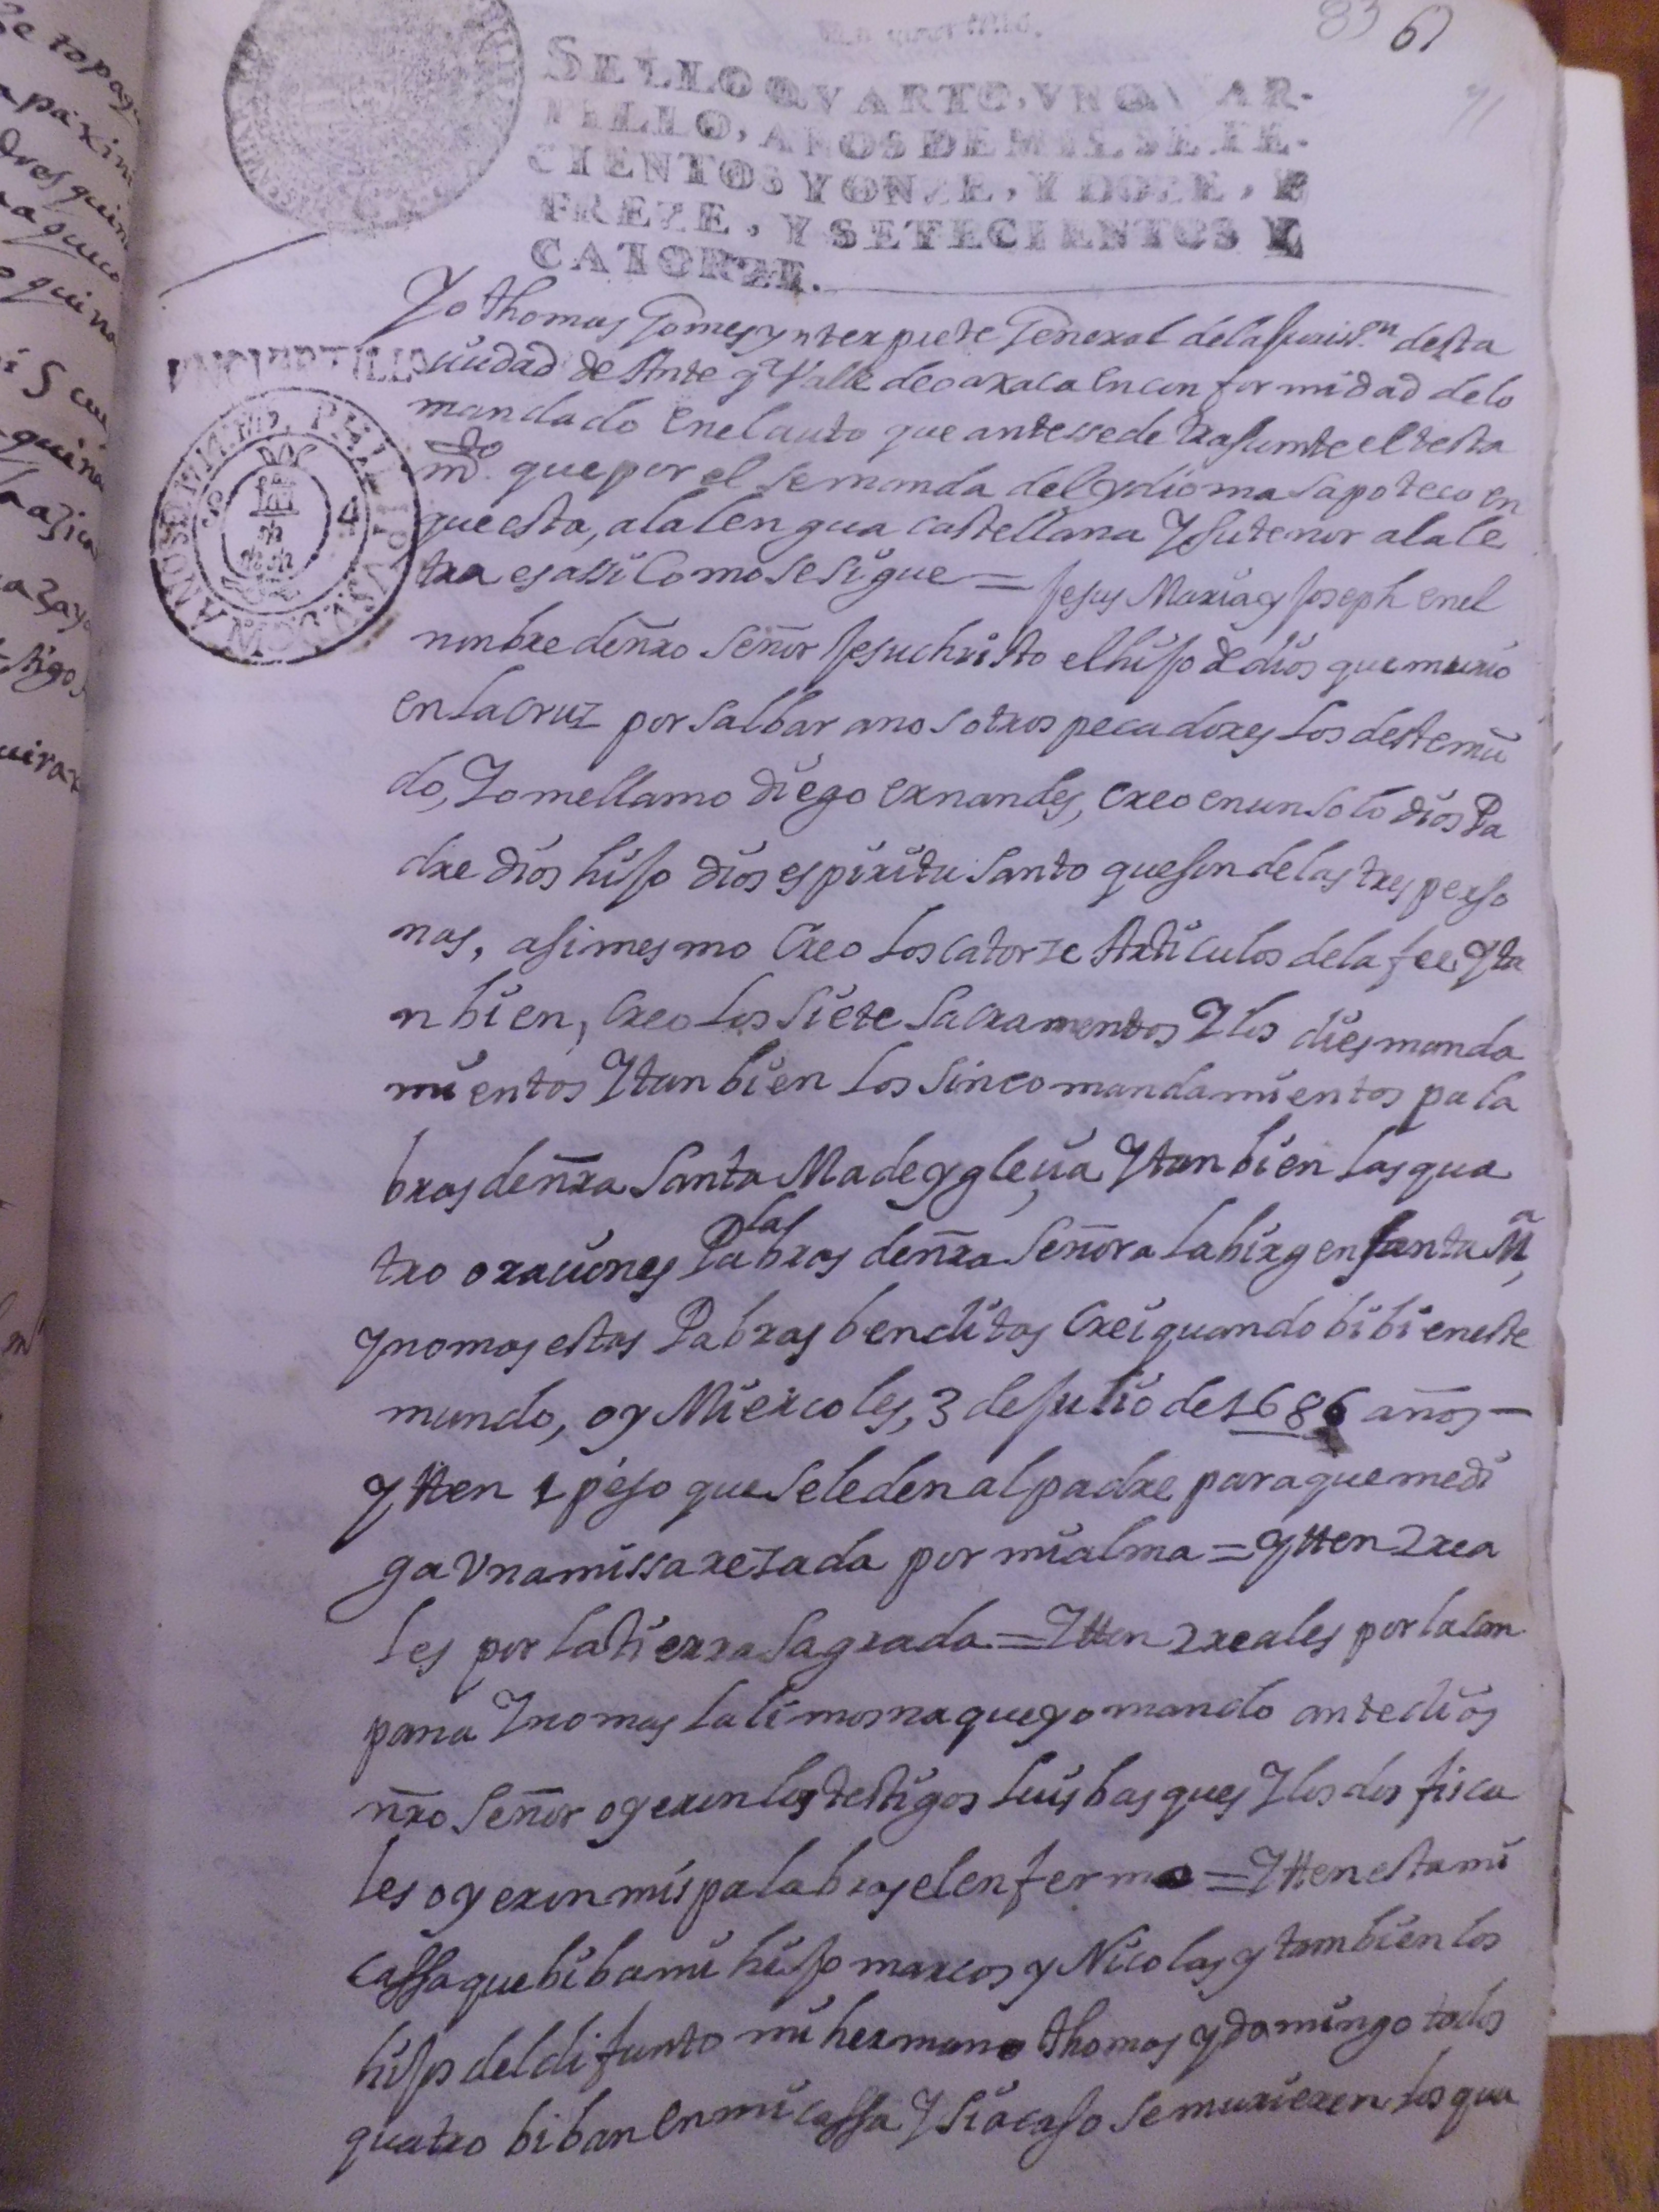 83 67
71
Un quartillo.
SELLO QVARTO, VN QVAR-
TILLO, AÑOS DE MIL SETE-
CIENTOS Y ONZE, Y DOZE, Y
TREZE, Y SETECIENTOS Y
CATORZE.
VNQVARTILLO
Yo thomas Gomes ynterprete General dela Juris.on desta
ciudad de Ante.qra Valle deoaxaca en con formidad de lo
mandado en el auto que antessede trasumte el testa
mto. que por el se manda del ydioma sapoteco en
que esta, ala lengua castellana Y su tenor ala le
tra es assi Como se sigue = Jesus Maria y Joseph en el
nonbre de ñro Señor Jesuchristo el hijo de dios que murio
en la cruz por salbar a nosotros pecadores los deste mū
do, Yo me llamo diego ernandes, creo en un solo dios Pa
dre dios hijo dios espiritu santo que son de las tres perso
nas, asi mesmo Creo los catorze Articulos de la fee, Y ta
n bien, creo los siete sacramentos Y los dies manda
mientos Y tan bien los sinco mandamientos pala
bras de ñra Santa Made ygleçia Y tan bien las qua
tro oraciones Palabras de ñra Señora la birgen santa Ma,
y no mas estas Pabras benditas Crei quando bibi en este
mundo, oy Miercoles, 3 de Julio de 1686 años —
y tten 1 peso que se le den al padre para que me di
ga Vna missa rezada por mi alma = y tten 2 rea
les por la tierra sagrada = Y tten 2 reales por la can
pana Y no mas la limosna que yo mando ante dios
ñro Señor oyeron los testigos luis basques Y los dos fisca
les oyeron mis palabras el enfermo = Y tten esta mi
cassa que biba mi hijo marcos y Nicolas y tambien los
hijos del difunto mi hermano thomas y domingo todos
quatro biban en mi cassa Y si acaso se murieren los qua